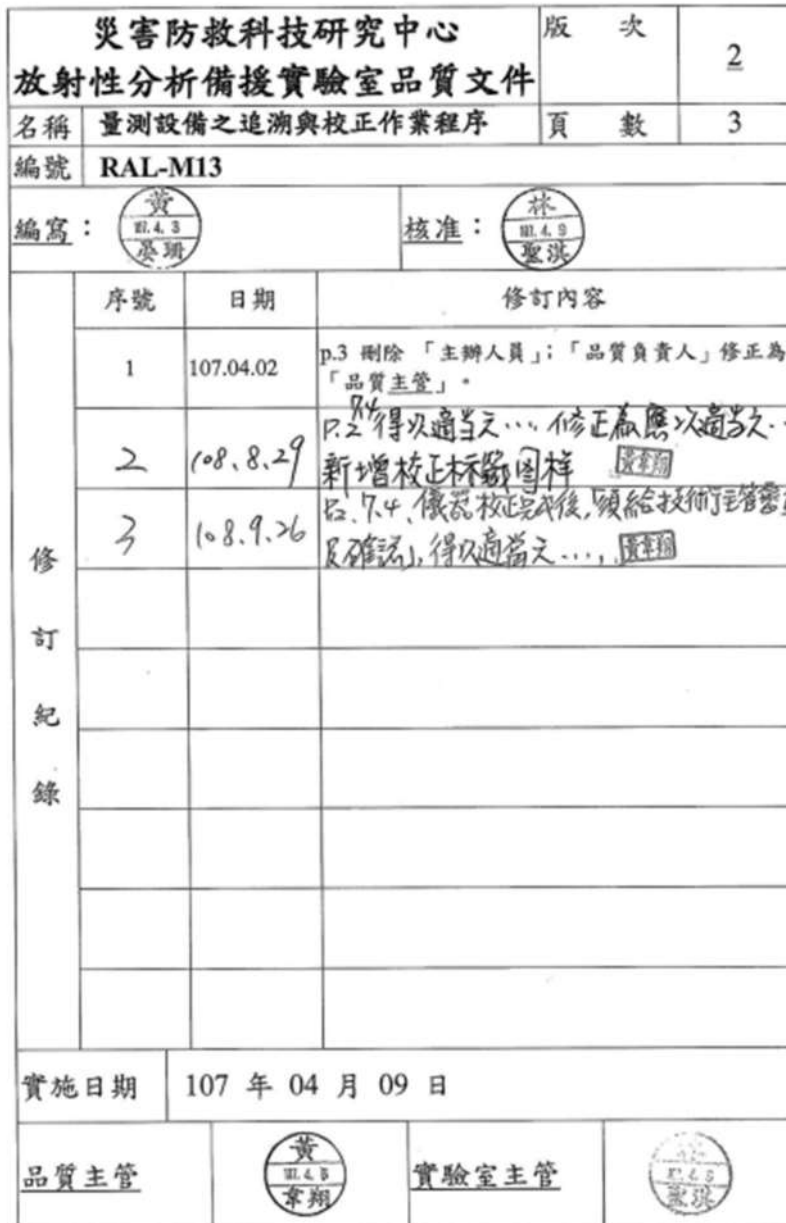 災害防救科技研究中心
放射性分析備援實驗室品質文件
版 次
2
名稱 量測設備之追溯與校正作業程序
頁 數 3
編號 RAL-M13
編寫：
黃
107.4.3
晏珊
核准：
林
107.4.9
聖淇
修訂紀錄
序號 日期 修訂內容
1 107.04.02 p.3 刪除 「主辦人員」；「品質負責人」修正為
「品質主管」。
2 108.8.29 P.2 7.4 得以適當之… 修正為應以適當之…
新增校正標籤圖樣 黃韋翔
3 108.9.26 P.2、7.4、儀器校正完成後，「須給技術主管審
及確認」，得以適當之…, 黃韋翔
實施日期 107 年 04 月 09 日
品質主管
黃
韋翔
實驗室主管
聖淇